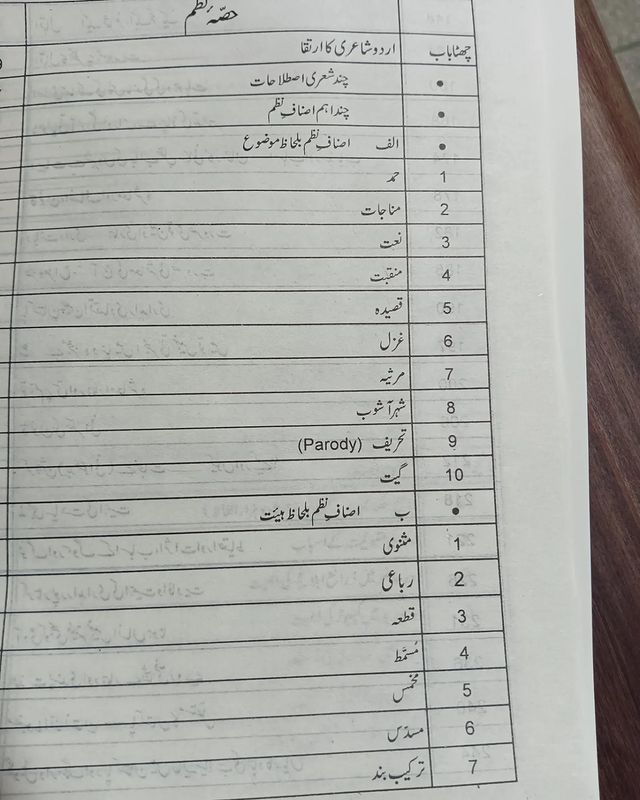 حصّہ نظم
چھٹا باب اردو شاعری کا ارتقا
• چند شعری اصطلاحات
• چند اہم اصنافِ نظم
• الف اصنافِ نظم بلحاظ موضوع
1 حمد
2 مناجات
3 نعت
4 منقبت
5 قصیدہ
6 غزل
7 مرثیہ
8 شہر آشوب
9 تحریف (Parody)
10 گیت
• ب اصنافِ نظم بلحاظ ہیئت
1 مثنوی
2 رباعی
3 قطعہ
4 مُسمَّط
5 مخمس
6 مسدّس
7 ترکیب بند